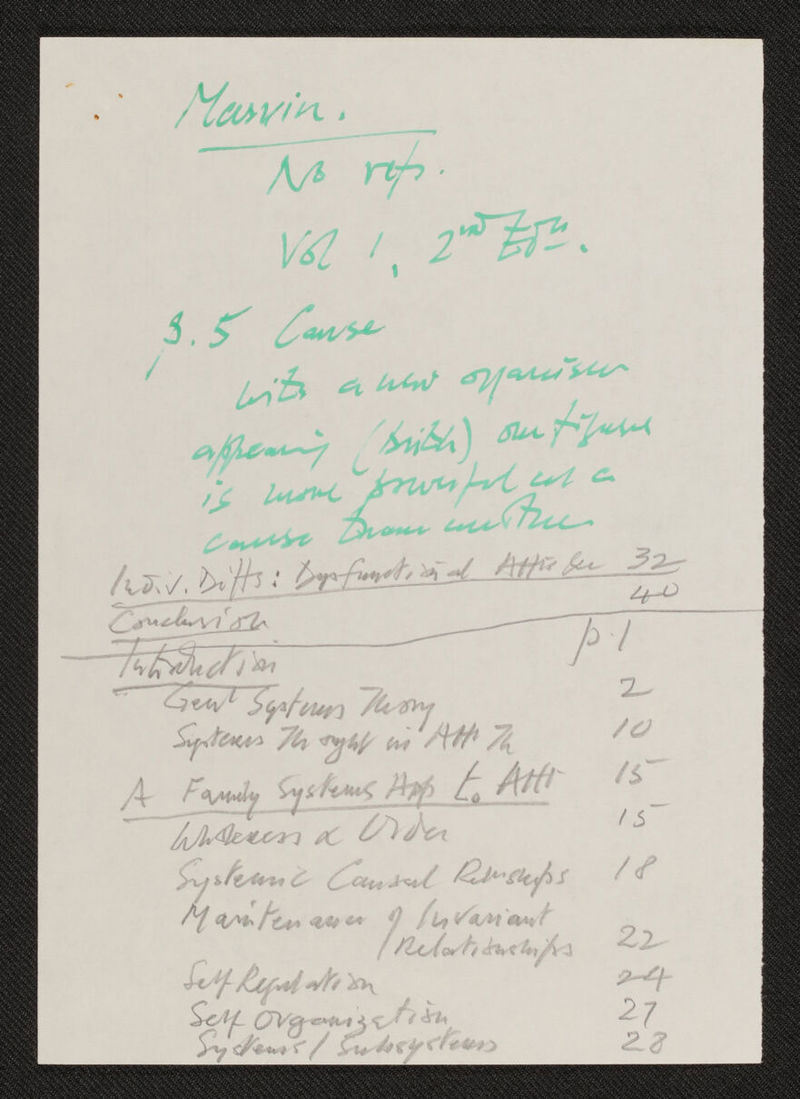 Marvin.
No refs.
Vol 1, 2nd Edn.
p.5 Cause
With a new organism
appearing (birth) one figure
is more powerful as a
cause than another
Indiv. Diffs: Dysfunctional Att 32
Conclusion 40
Introduction p.1
Genl Systems Theory 2
Systems Thought in Att Th 10
A Family Systems App to Att 15
Wholeness & Order 15
Systemic Causal Relnships 18
Maintenance of Invariant
Relationships 22
Self Regulation 24
Self Organization 27
Systems / Subsystems 28